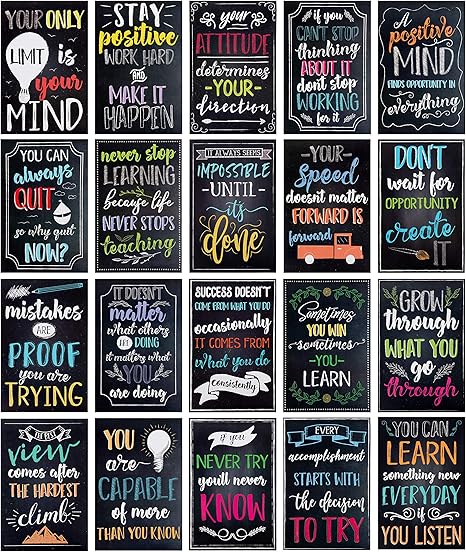 YOUR ONLY
LIMIT is
your
MIND
STAY
positive
WORK HARD
AND
MAKE IT
HAPPEN
your
ATTITUDE
determines
-YOUR-
direction
if you
CAN'T STOP
thinking
ABOUT IT
dont stop
WORKING
for it
A
positive
MIND
FINDS OPPORTUNITY IN
everything
YOU CAN
always
QUIT
so why quit
NOW?
never stop
LEARNING
because life
NEVER STOPS
teaching
IT ALWAYS SEEMS
IMPOSSIBLE
-UNTIL-
it's
done
-YOUR-
Speed
doesnt matter
FORWARD IS
forward
DON'T
wait for
OPPORTUNITY
create
IT
mistakes
ARE
PROOF
you are
TRYING
IT DOESN'T
matter
what others
ARE DOING
it matters what
YOU
are doing
SUCCESS DOESN'T
COME FROM WHAT YOU DO
occasionally
IT COMES FROM
what you do
Consistently
Sometimes
YOU WIN
sometimes
-YOU-
LEARN
GROW
through
WHAT YOU
go
through
THE BEST
view
comes after
THE HARDEST
climb
YOU
are
CAPABLE
of more
THAN YOU KNOW
if you
NEVER TRY
youll never
KNOW
EVERY
accomplishment
STARTS WITH
the decision
TO TRY
YOU CAN
LEARN
something new
EVERYDAY
if
YOU LISTEN